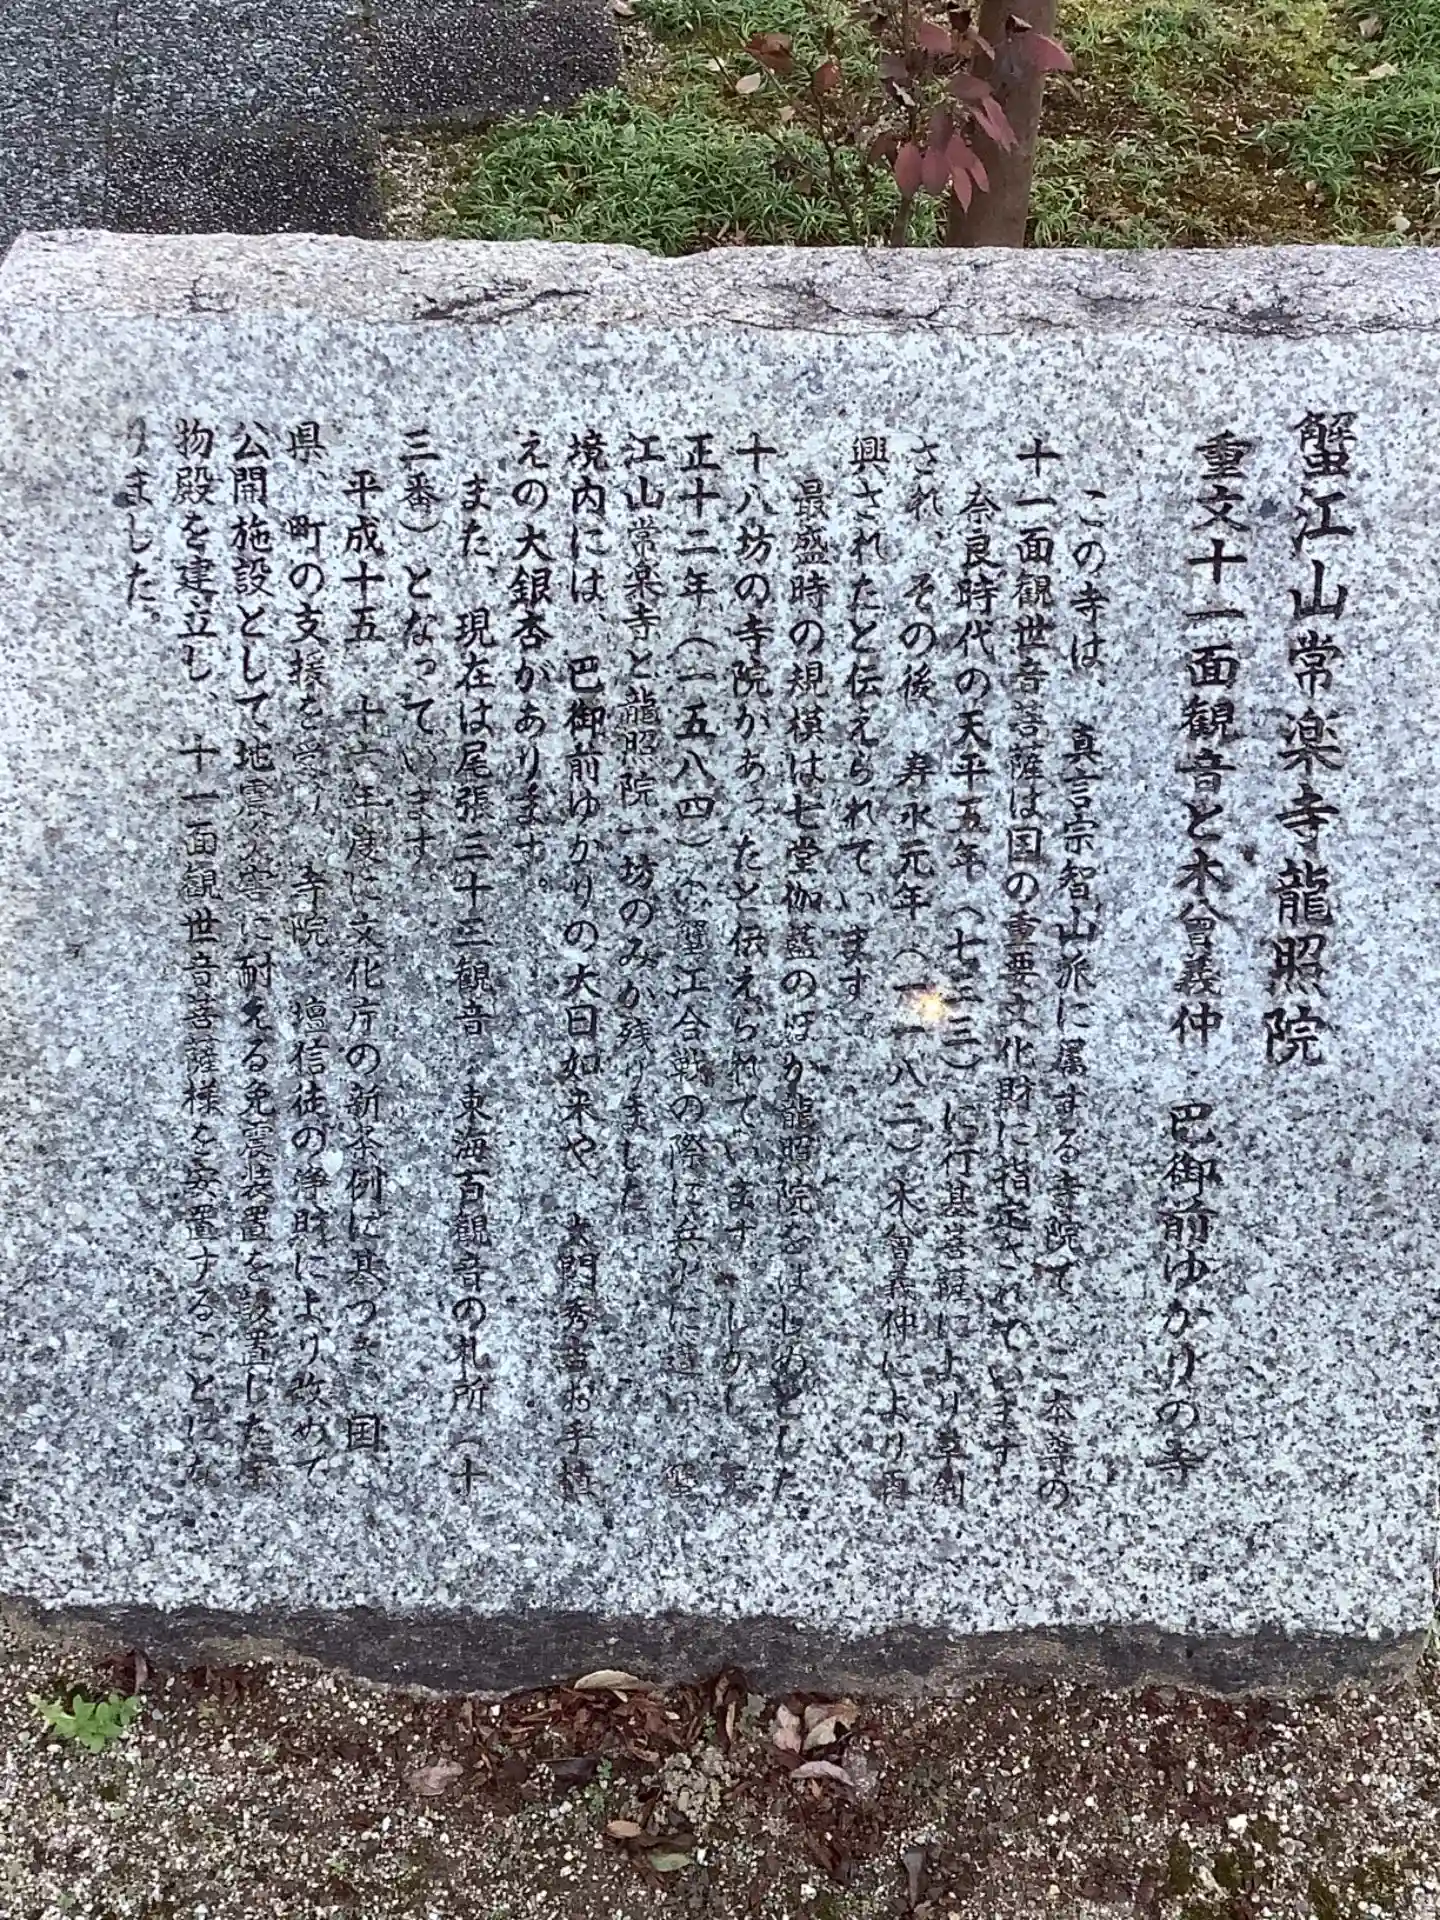 蟹江山常楽寺龍照院
重文十一面観音と木曾義仲　巴御前ゆかりの寺
この寺は、真言宗智山派に属する寺院で、ご本尊の
十一面観世音菩薩は国の重要文化財に指定されています
奈良時代の天平五年（七三三）に行基菩薩により草創
され、その後、寿永元年（一一八二）木曾義仲により再
興されたと伝えられています。
最盛時の規模は七堂伽藍のほか龍照院をはじめとした
十八坊の寺院があったと伝えられています。しかし、天
正十二年（一五八四）の蟹江合戦の際に兵火に遭い、蟹
江山常楽寺と龍照院一坊のみが残りました。
境内には、巴御前ゆかりの大日如来や、太閤秀吉お手植
えの大銀杏があります。
また、現在は尾張三十三観音、東海百観音の札所（十
三番）となっています。
平成十五、十六年度に文化庁の新条例に基づき、国、
県、町の支援を受け、寺院、壇信徒の浄財により改めて
公開施設として地震災害に耐える免震装置を設置した宝
物殿を建立し、十一面観世音菩薩様を安置することにな
りました。